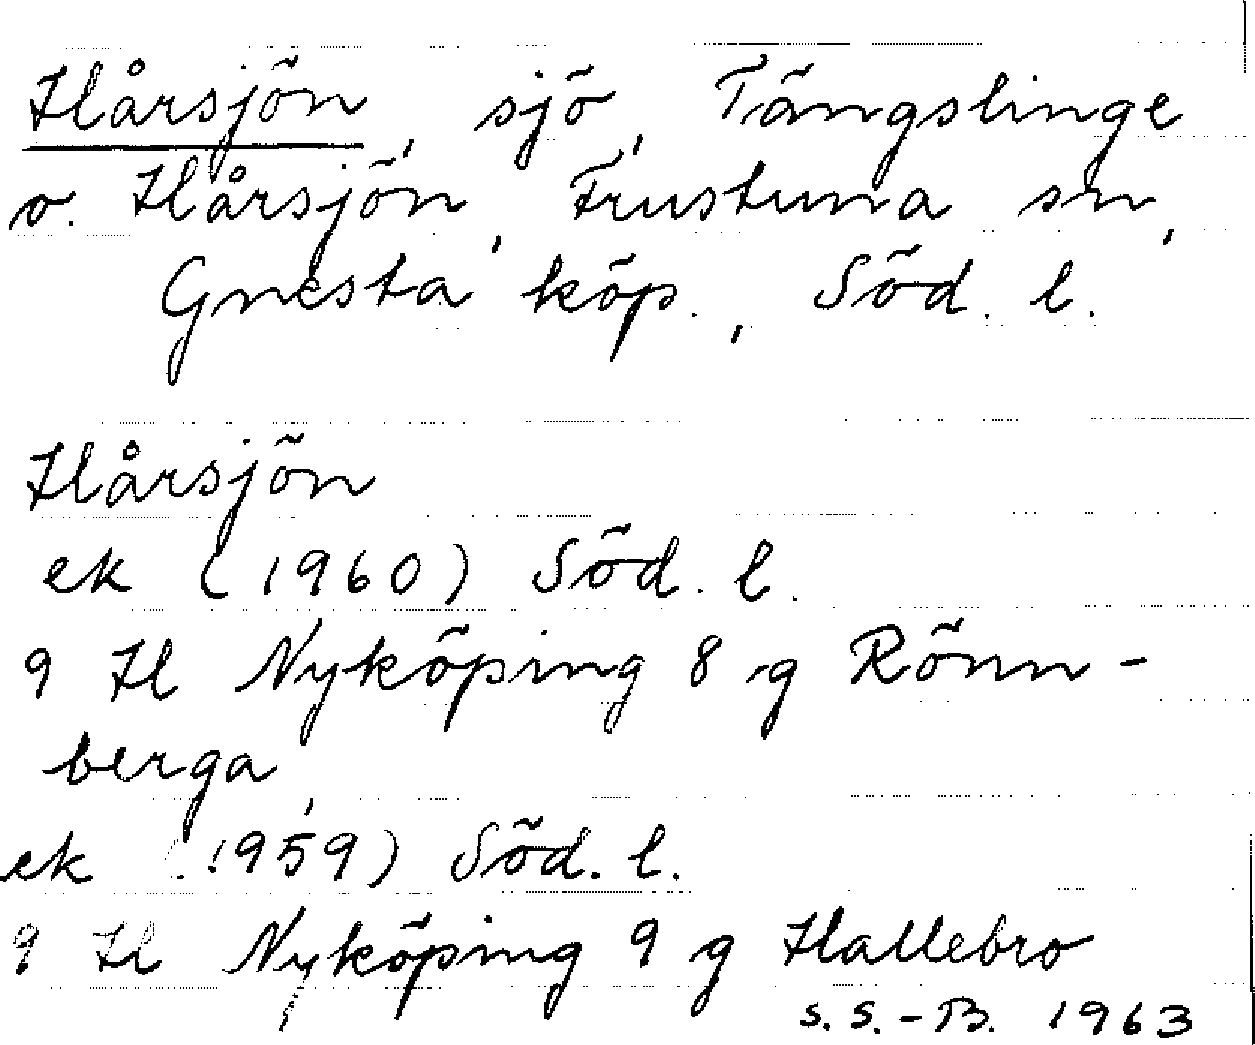 Hårsjön, sjö, Tängslinge
o. Hårsjön, Frustuna sn,
Gnesta köp., Söd. l.
Hårsjön
ek (1960) Söd. l.
9 H Nyköping 8 g Rönn-
berga,
ek (1959) Söd. l.
9 H Nyköping 9 g Hallebro
S.S.-B. 1963